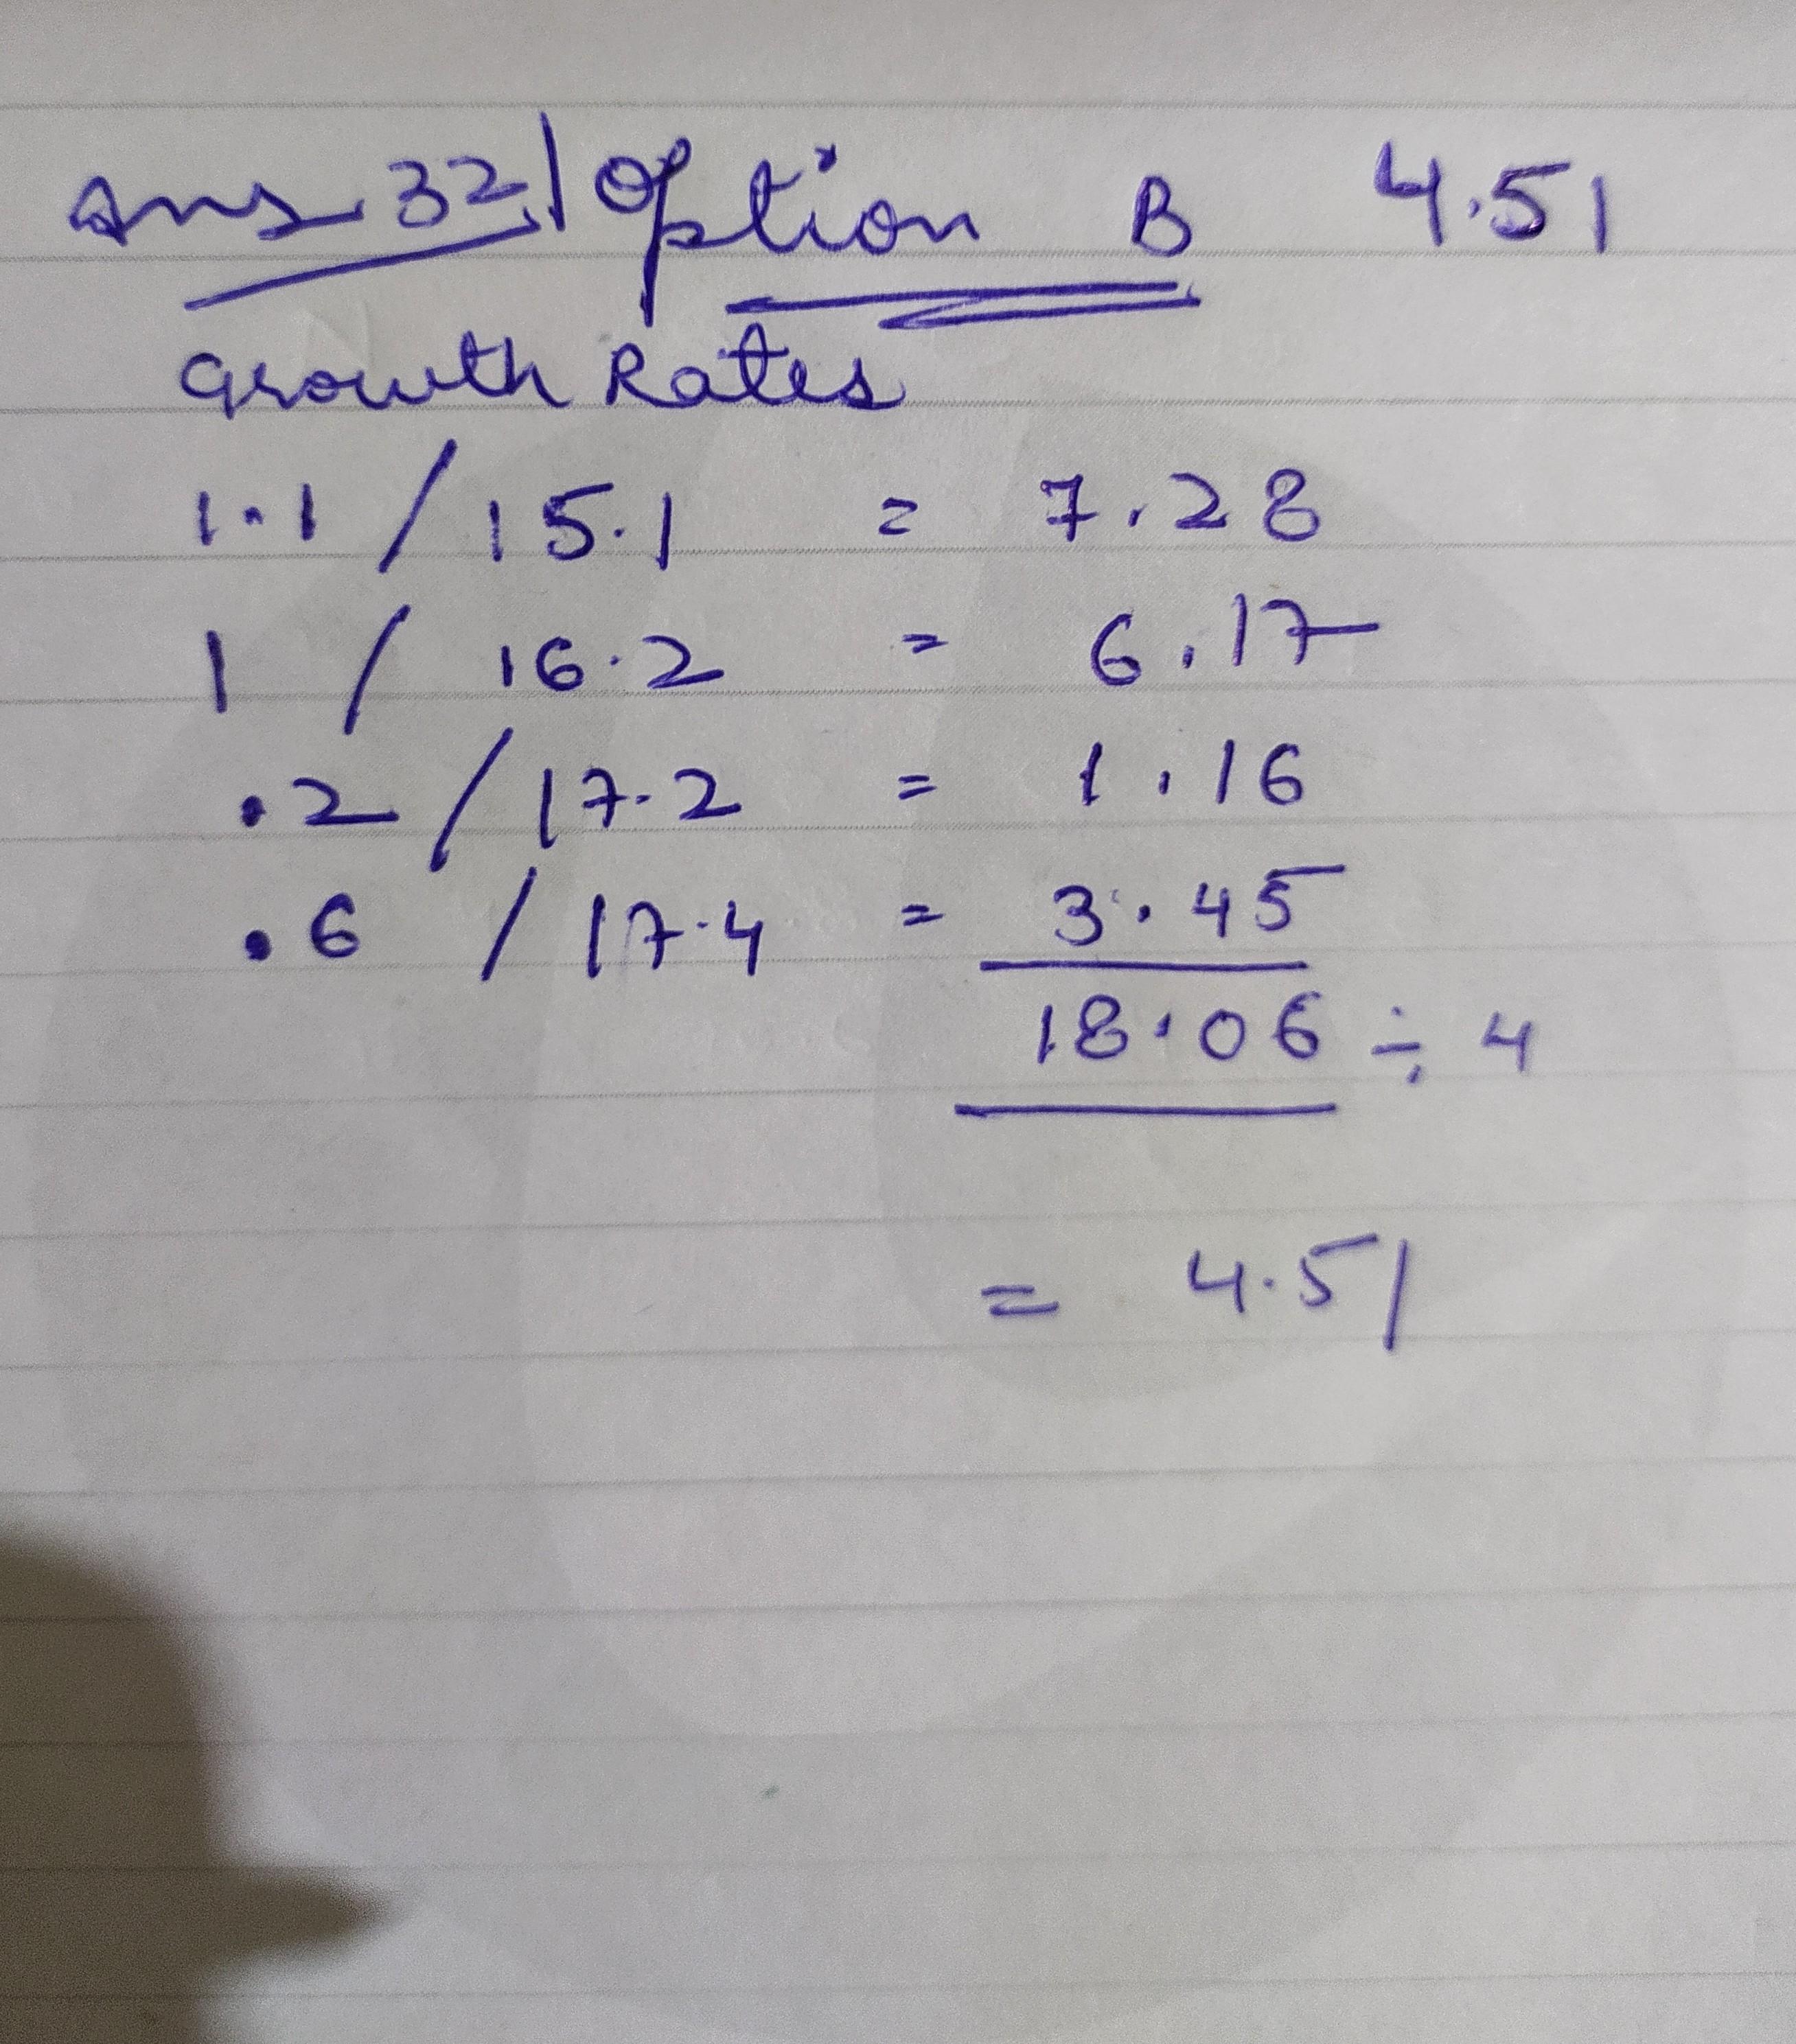 Ans 32/ Option B 4.51
Growth Rates
1.1 / 15.1 = 7.28
1 / 16.2 = 6.17
.2 / 17.2 = 1.16
.6 / 17.4 = 3.45
18.06 ÷ 4
= 4.51